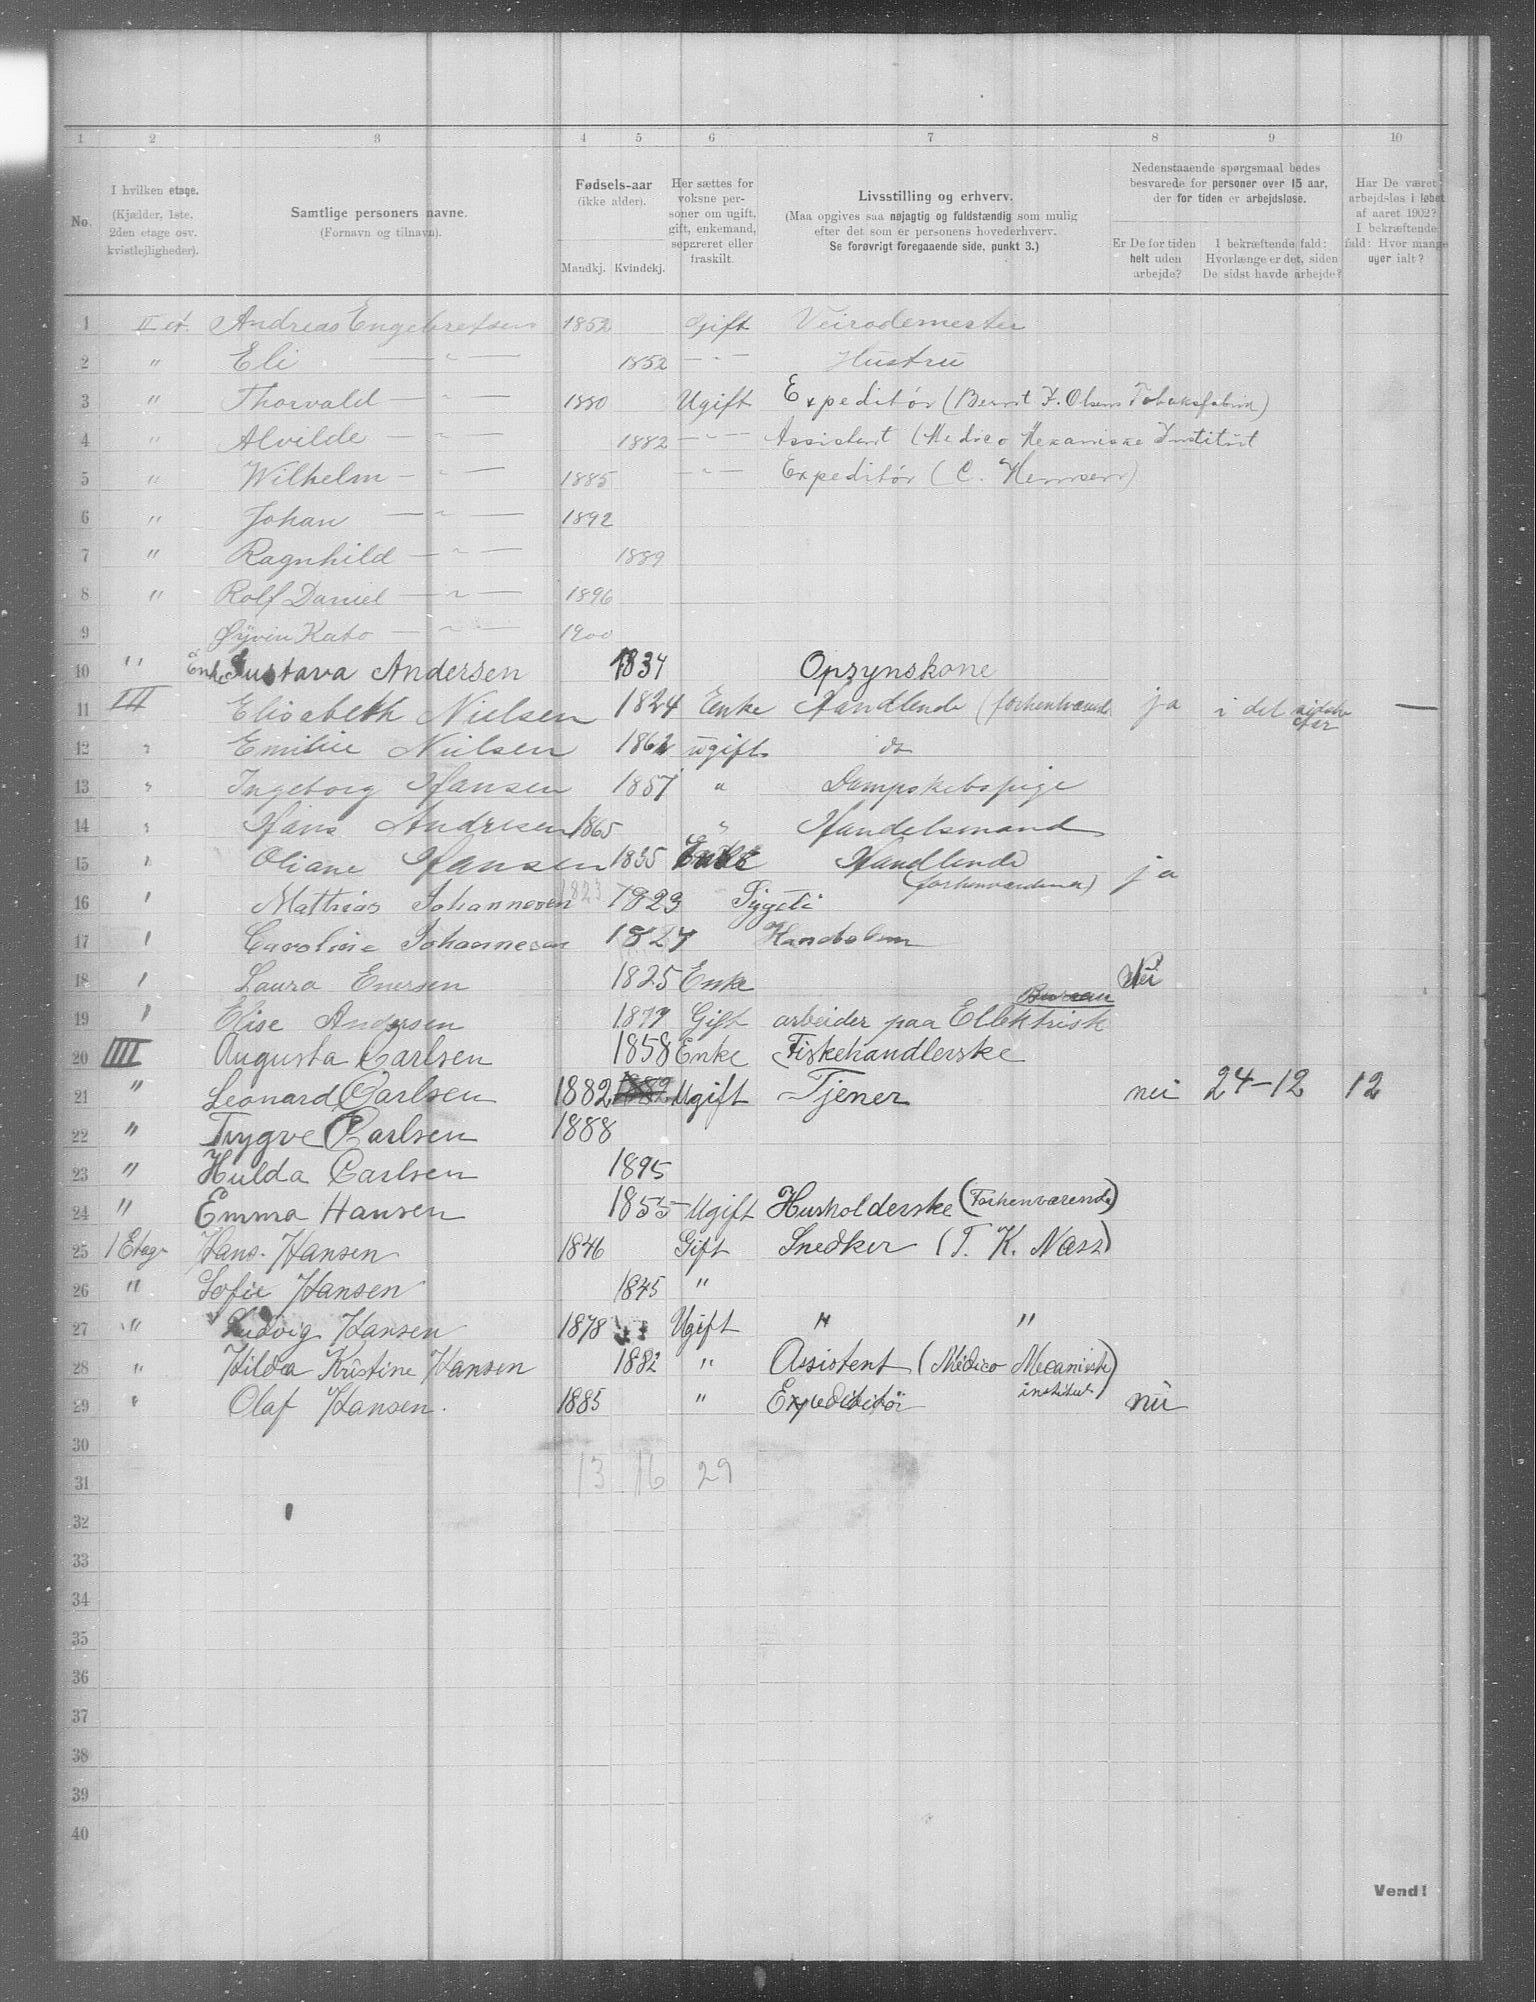 1 2 3 4 5 6 7 8 9 10
No.
I hvilken etage.
(Kjælder, 1ste.
2den etage osv.
kvistlejligheder).
Samtlige personers navne.
(Fornavn og tilnavn).
Fødsels-aar
(ikke alder).
Mandkj. Kvindekj.
Her sættes for
voksne per-
soner om ugift,
gift, enkemand,
separeret eller
fraskilt.
Livsstilling og erhverv.
(Maa opgives saa nøjagtig og fuldstændig som mulig
efter det som er personens hovederhverv.
Se forøvrigt foregaaende side, punkt 3.)
Nedenstaaende spørgsmaal bedes
besvarede for personer over 15 aar,
der for tiden er arbejdsløse.
Er De for tiden
helt uden
arbejde?
I bekræftende fald:
Hvorlænge er det, siden
De sidst havde arbejde?
Har De været
arbejdsløs i løbet
af aaret 1902?
I bekræftende
fald: Hvor mange
uger ialt?
1 II et. Andreas Engebretsen 1852 Gift Veirodemester
2 " Eli — " — 1852 — " — Hustru
3 " Thorvald — " — 1880 Ugift Expeditør (Bernt F. Olsens Tobaksfabrik)
4 " Alvilde — " — 1882 — " — Assistent (Medico Mekaniske Institut
5 " Wilhelm — " — 1885 — " — Expeditør (C. )
6 " Johan — " — 1892
7 " Ragnhild — " — 1889
8 " Rolf Daniel — " — 1896
9 Øyvin Kato — " — 1900
10 " Enke Gustava Andersen 1834 Opsynskone
11 III Elisabeth Nielsen 1824 Enke Handlende (forhenværende ja i det sidste —
Aar
12 " Emilie Nielsen 1862 ugift do
13 " Ingeborg Hansen 1857 " Dampskibspige
14 " Hans Andresen 1865 " Handelsmand
15 " Oliane Hansen 1835 Enke Handlende ja
(forhenværende)
16 " Mathias Johannesen 1823 1823
17 " Caroline Johannesen 1827
18 " Laura Enersen 1825 Enke Nei
Bureau
19 " Elise Andersen 1877 Gift arbeider paa Ellektrisk
20 IIII Augusta Carlsen 1858 Enke Fiskehandlerske
21 " Leonard Carlsen 1882 1882 Ugift Tjener nei 24-12 12
22 " Trygve Carlsen 1888
23 " Hulda Carlsen 1895
24 " Emma Hansen 1855 Ugift Husholderske (Forhenværende)
25 1 Etage Hans Hansen 1846 Gift Snedker (T. K. Næss)
26 " Sofie Hansen 1845 "
27 " Ludvig Hansen 1878 Ugift " "
28 " Hilda Kristine Hansen 1882 " Assistent (Médico Mecanisk
institut)
29 " Olaf Hansen. 1885 " Expeditør nei
30
31 13 16 29
32
33
34
35
36
37
38
39
40
Vend!